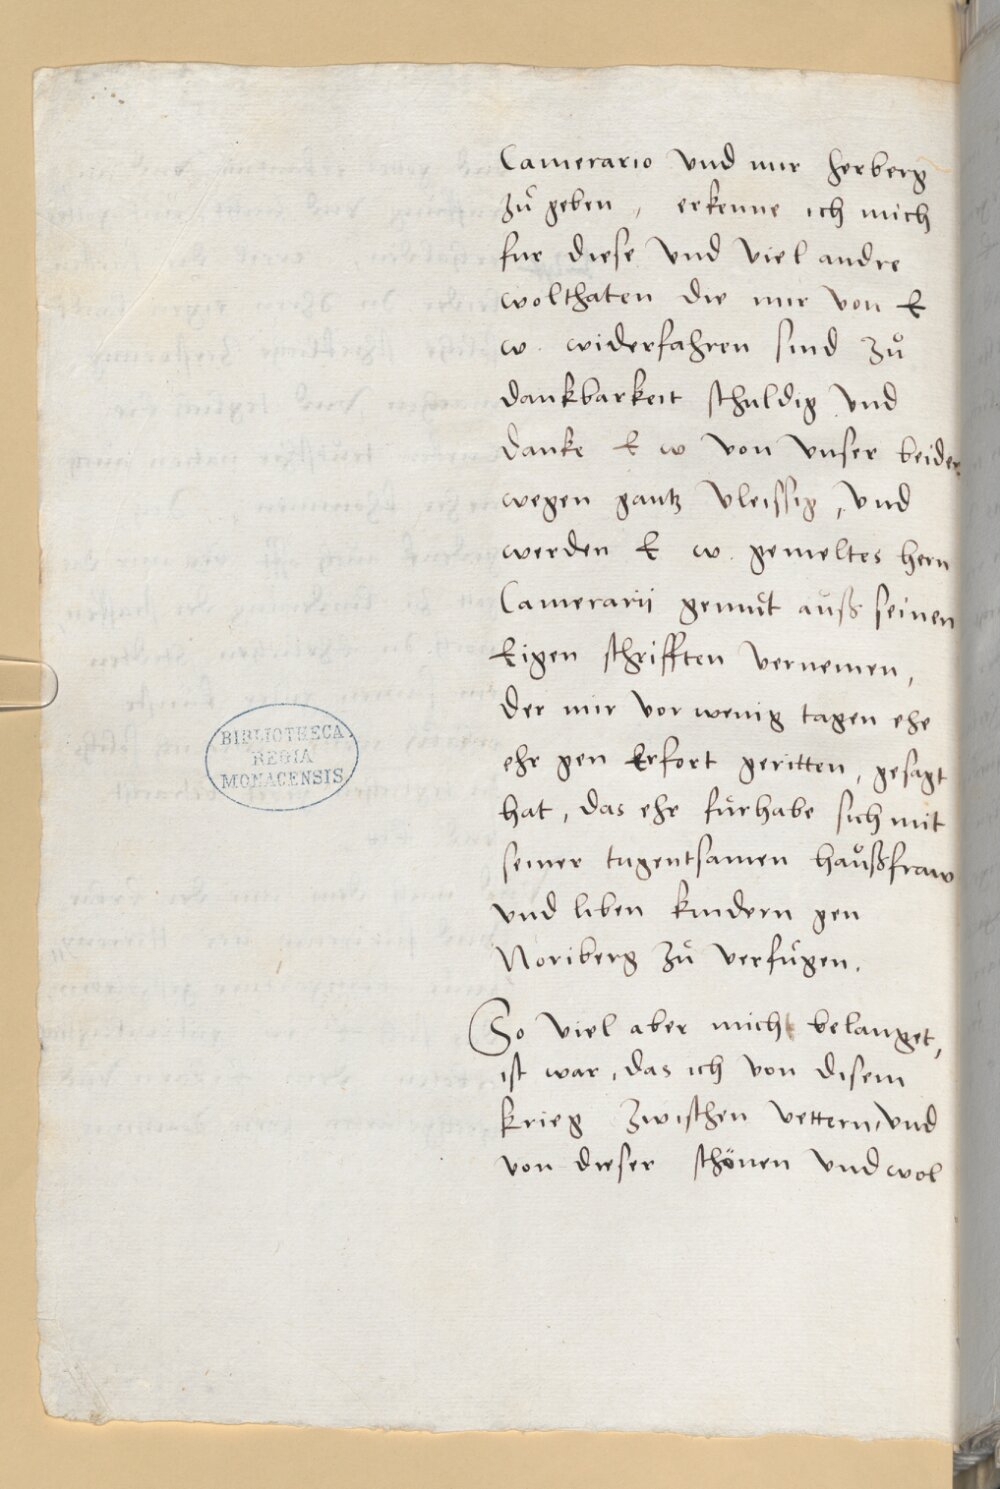 Camerario vnd mir herberg
zů geben, erkenne ich mich
fur diese vnd viel andre
wolthaten die mir von E
w. widerfahren sind zů
dankbarkeit schuldig vnd
danke E w von vnser beider
wegen gantz vleissig, vnd
werden E w. gemeltes hern
Camerarij gemůt auß seinen
Eigen schrifften vernemen,
der mir vor wenig tagen ehe
ehr gen Erfort geritten, gesagt
hat, das ehr fürhabe sich mit
seiner tugentsamen haußfraw
vnd liben kindern gen
Noriberg zů verfůgen.
So viel aber mich belanget,
ist war, das ich von disem
krieg zwischen vettern, vnd
von dieser schönen vnd wol
BIBLIOTHECA
REGIA
MONACENSIS